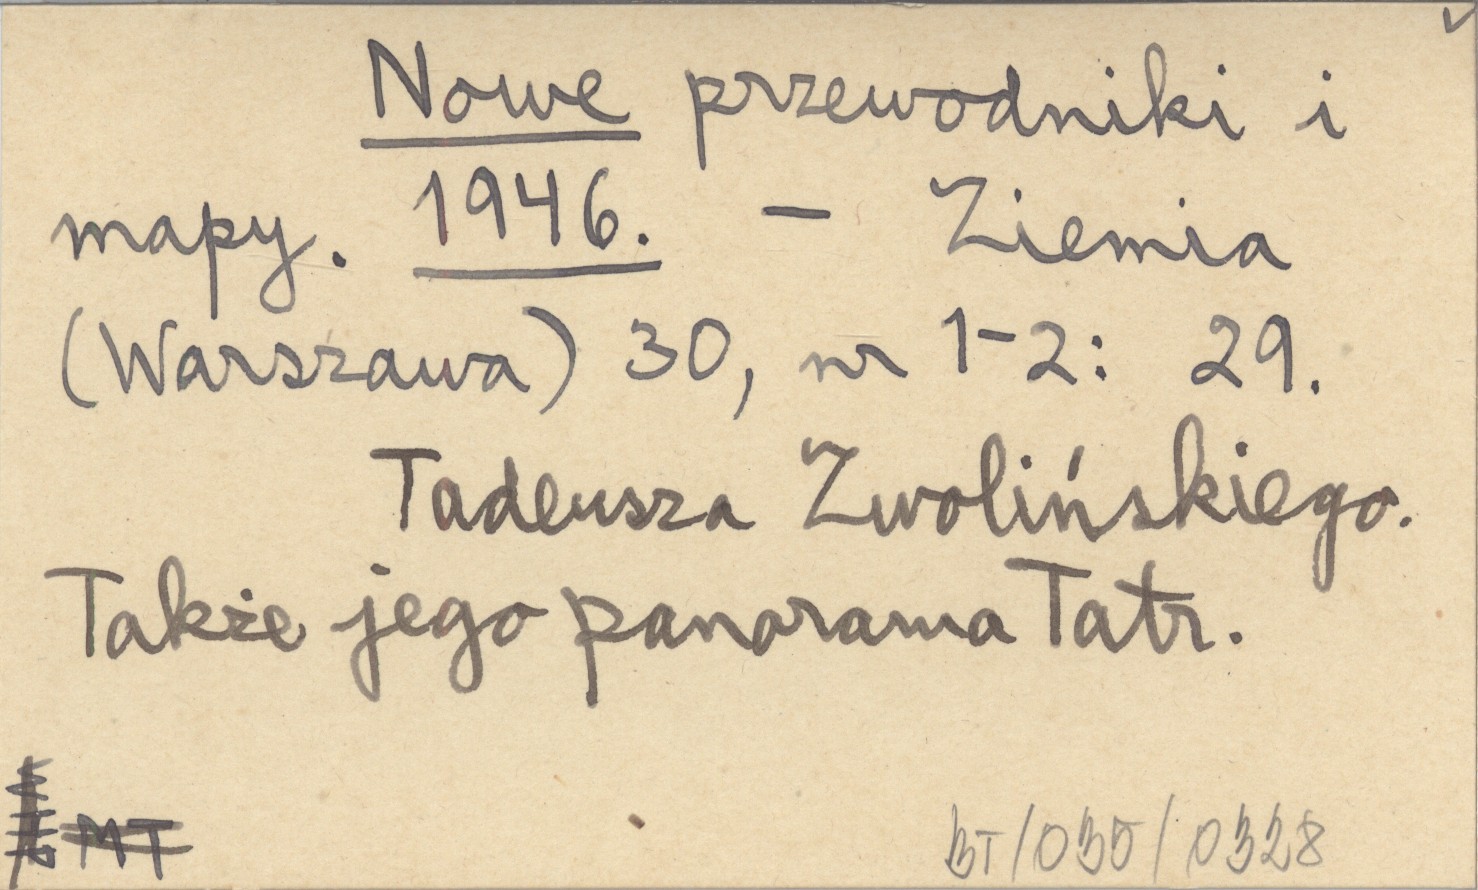 Nowe przewodniki i
mapy. 1946. – Ziemia
(Warszawa) 30, nr 1-2: 29.
Tadeusza Zwolińskiego.
Także jego panorama Tatr.
MT
BT/035/0328